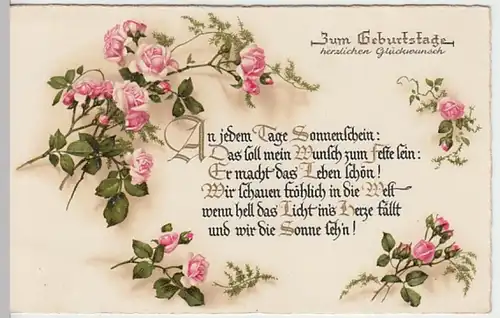 Zum Geburtstage
herzlichen Glückwunsch
An jedem Tage Sonnenschein:
Das soll mein Wunsch zum Feste sein:
Er macht das Leben schön!
Wir schauen fröhlich in die Welt
wenn hell das Licht in's Herze fällt
und wir die Sonne seh'n!